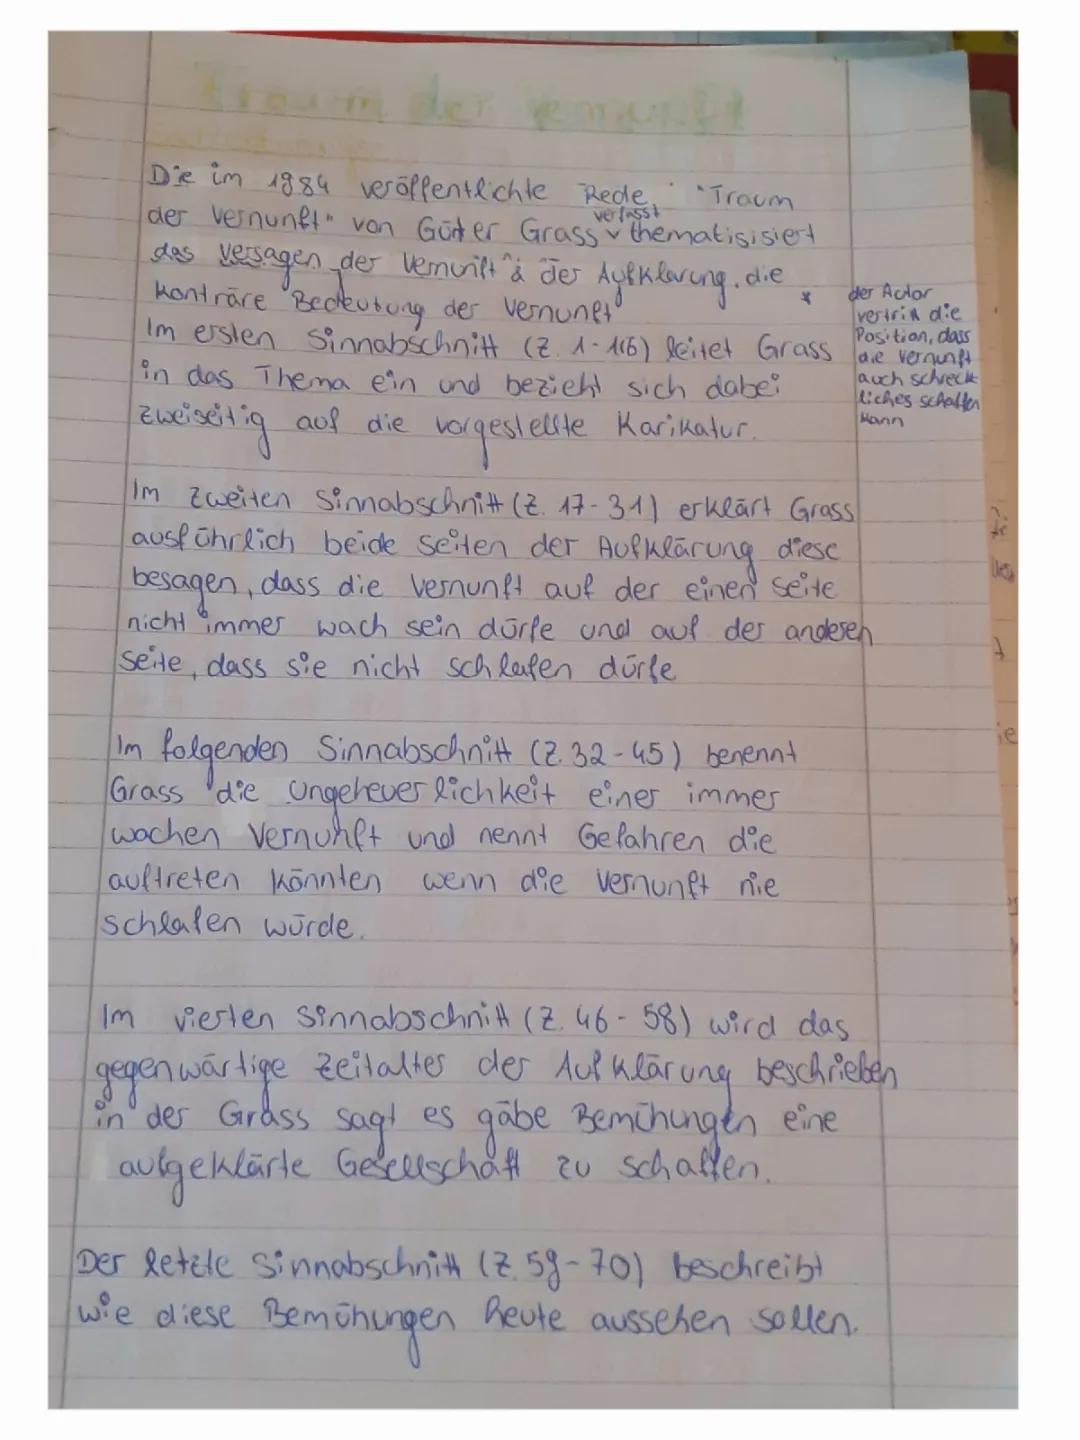 Die im 1984 veröffentlichte Rede, "Traum
der Vernunft" von Güter Grass verfasst thematisisiert
das Versagen der Vernunft & der Aufklärung, die
konträre Bedeutung der Vernunft *
der Autor
vertritt die
Position, dass
die Vernunft
auch schreck
liches schaffen
kann
Im ersten Sinnabschnitt (Z. 1-116) leitet Grass
in das Thema ein und bezieht sich dabei
zweiseitig auf die vorgestellte Karikatur.
Im zweiten Sinnabschnitt (Z. 17-31) erklärt Grass
ausführlich beide Seiten der Aufklärung diese
besagen, dass die Vernunft auf der einen Seite
nicht immer wach sein dürfe und auf der anderen
Seite, dass sie nicht schlafen dürfe
Im folgenden Sinnabschnitt (Z. 32-45) benennt
Grass die Ungeheuerlichkeit einer immer
wachen Vernunft und nennt Gefahren die
auftreten könnten wenn die Vernunft nie
schlafen würde.
Im vierten Sinnabschnitt (Z. 46-58) wird das
gegenwärtige Zeitalter der Aufklärung beschrieben
in der Grass sagt es gäbe Bemühungen eine
aufgeklärte Gesellschaft zu schaffen.
Der letzte Sinnabschnitt (Z. 59-70) beschreibt
wie diese Bemühungen heute aussehen sollen.